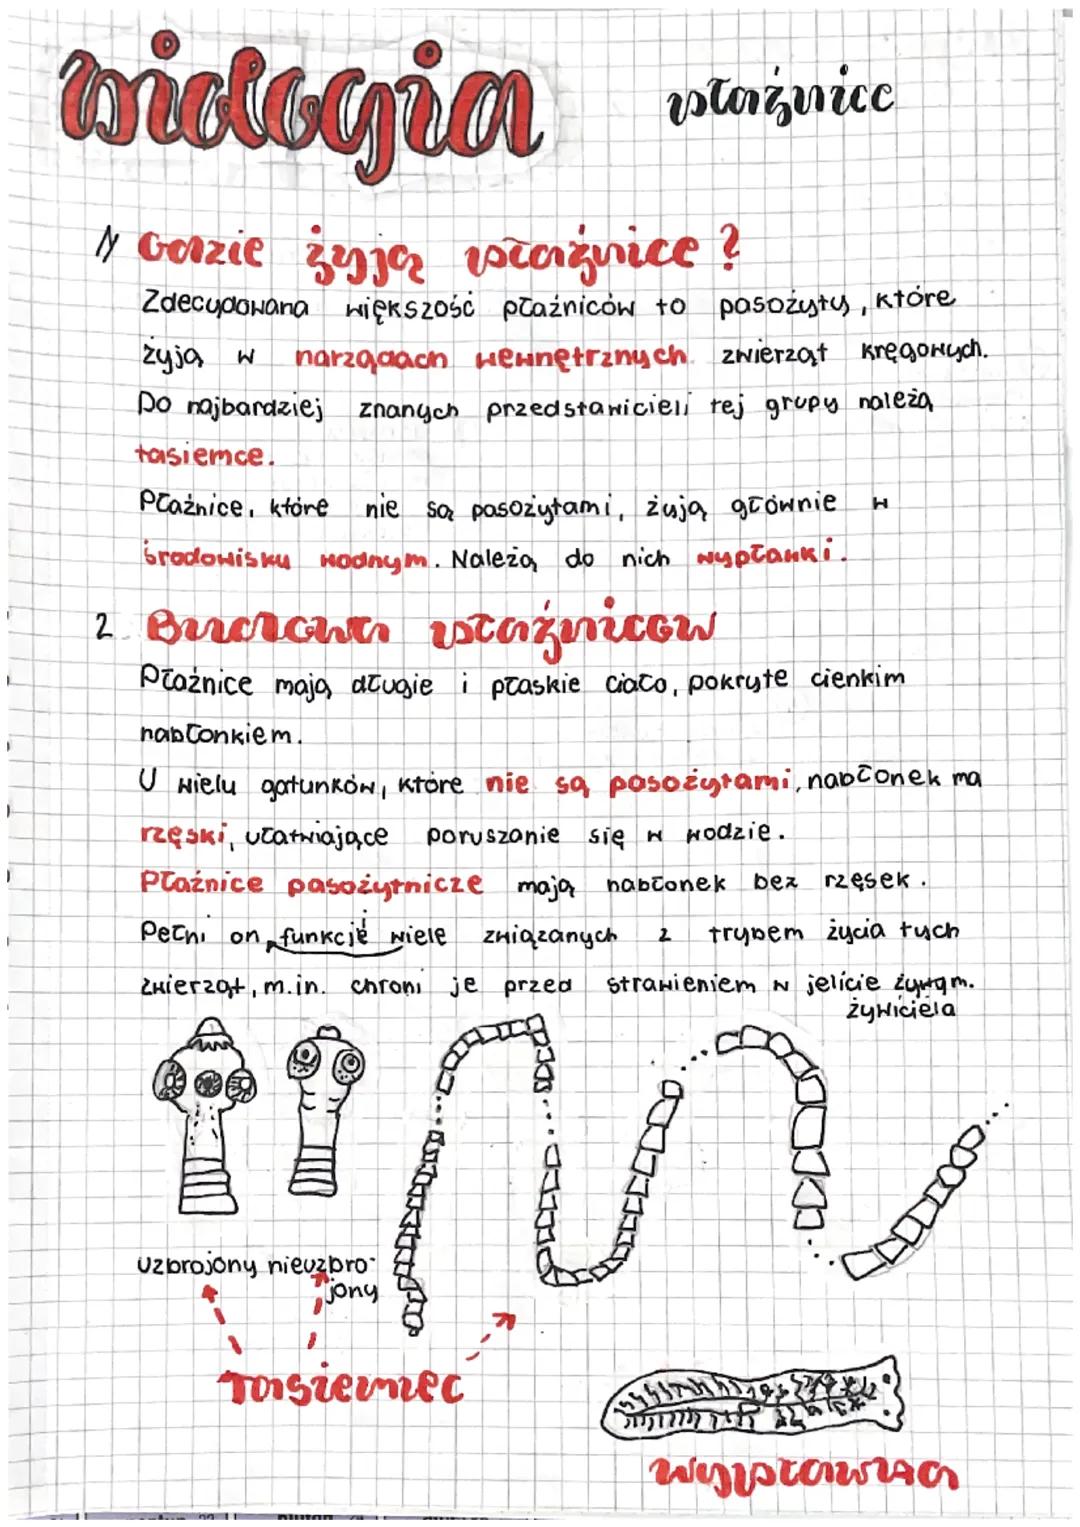 biologia
płaźnice
1 Gdzie żyją płaźnice?
Zdecydowana większość płaźniców to pasożyty, które
żyją w narządach wewnętrznych zwierząt kręgowych.
Do najbardziej znanych przedstawicieli tej grupy należą
tasiemce.
Płaźnice, które nie są pasożytami, żyją głównie w
środowisku wodnym. Należą do nich wypławki.
2. Budowa płaźniców
Płaźnice mają długie i płaskie ciało, pokryte cienkim
nabłonkiem.
U wielu gatunków, które nie są pasożytami, nabłonek ma
rzęski, ułatwiające poruszanie się w wodzie.
Płaźnice pasożytnicze mają nabłonek bez rzęsek.
Pełni on funkcje wiele związanych z trybem życia tych
zwierząt, m.in. chroni je przed strawieniem w jelicie
żywiciela
uzbrojony nieuzbro-
jony
Tasiemiec
Wypławka